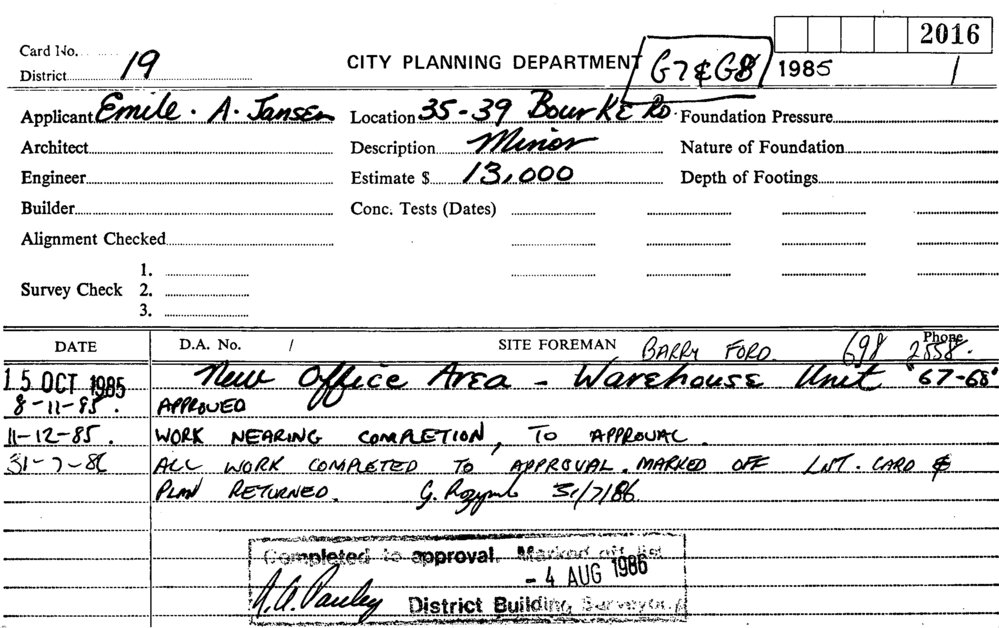 2016
Card No.
District 19 CITY PLANNING DEPARTMENT G7 & G8 1985 /
Applicant Emile. A. Jansen Location 35-39 Bourke Rd Foundation Pressure
Architect Description Minor Nature of Foundation
Engineer Estimate $ 13,000 Depth of Footings
Builder Conc. Tests (Dates)
Alignment Checked
1.
Survey Check 2.
3.
DATE D.A. No. / SITE FOREMAN BARRY FORD. Phone 698 2558.
15 OCT 1985 New Office Area - Warehouse Unit "G7-G8"
8-11-85. APPROVED
11-12-85. WORK NEARING COMPLETION, TO APPROVAL.
31-7-86 ALL WORK COMPLETED TO APPROVAL. MARKED OFF LIST. CARD &
PLAN RETURNED. G. 31/7/86
Completed to approval. Marked off list
- 4 AUG 1986
A.A. Pauley District Building Surveyor